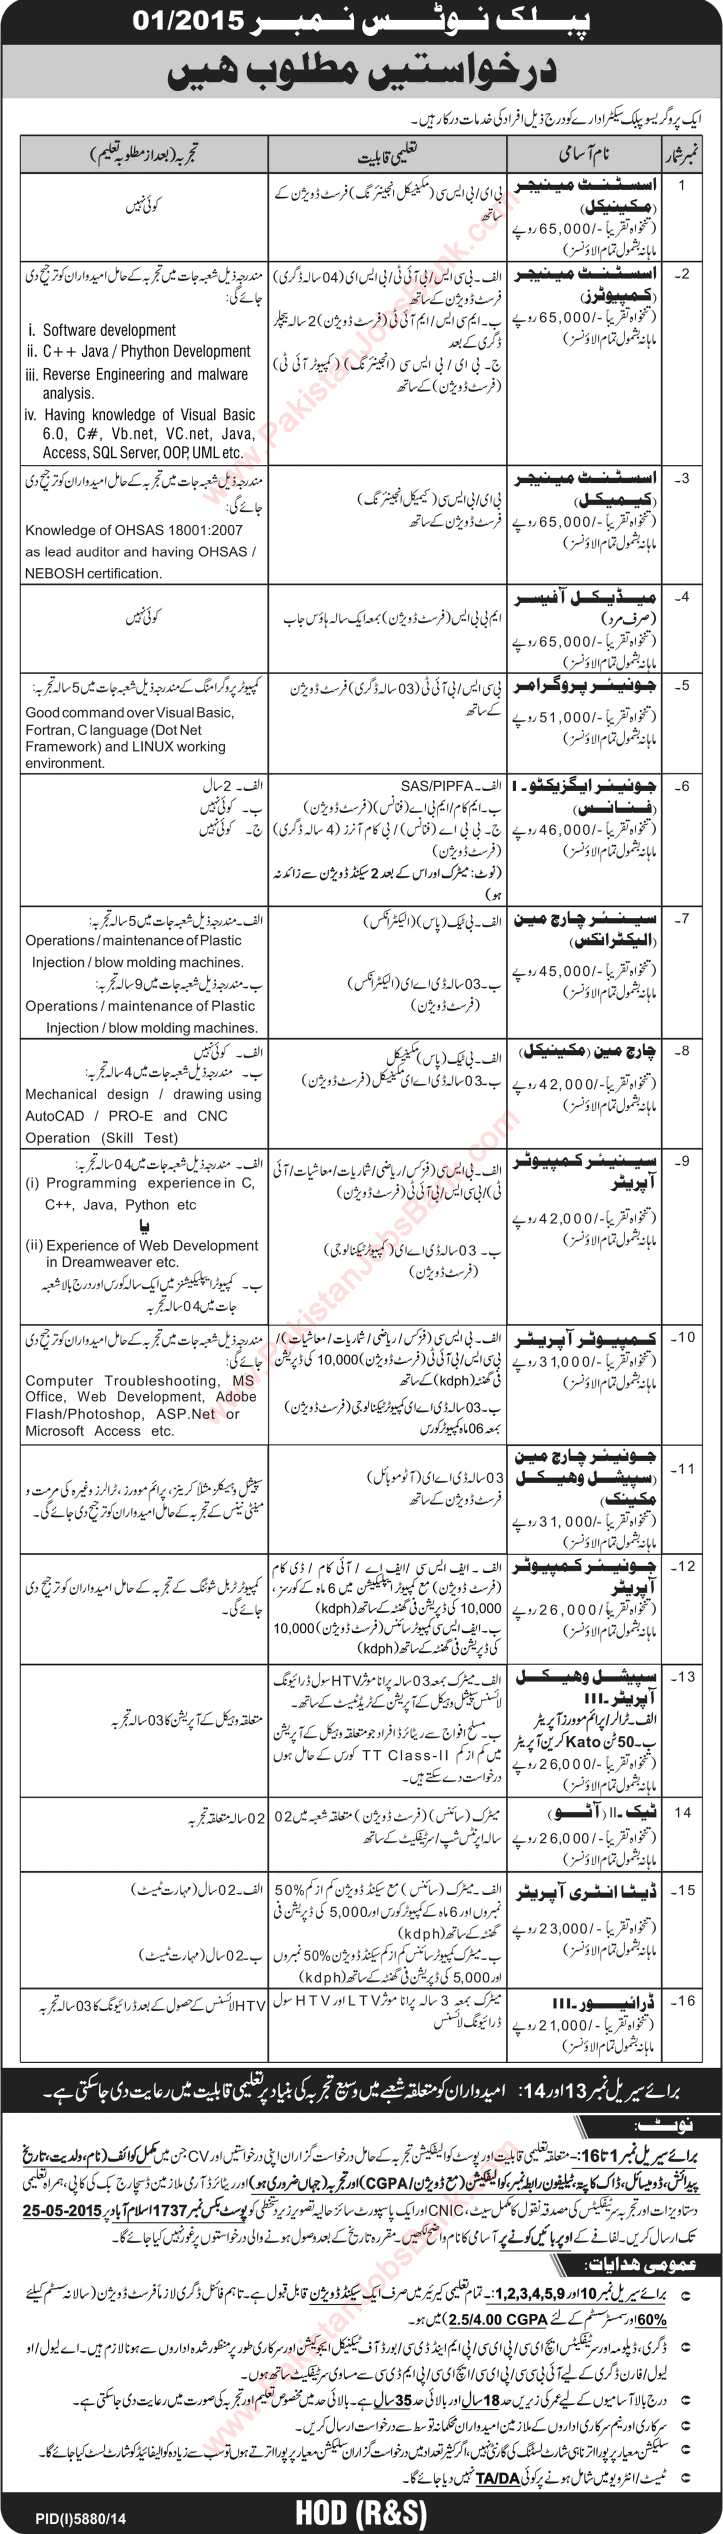 پبلک نوٹس نمبر 01/2015
درخواستیں مطلوب ہیں
ایک پروگریسو پبلک سیکٹر ادارے کو درج ذیل افراد کی خدمات درکار ہیں۔
نمبر شمار
نام آسامی
تعلیمی قابلیت
تجربہ (بعد از مطلوبہ تعلیم)
1
اسسٹنٹ مینیجر
(مکینیکل)
(تنخواہ تقریباً -/65,000 روپے
ماہانہ بشمول تمام الاؤنسز)
بی ای/بی ایس سی (مکینیکل انجینئرنگ) فرسٹ ڈویژن کے
ساتھ
کوئی نہیں
2۔
اسسٹنٹ مینیجر
(کمپیوٹرز)
(تنخواہ تقریباً -/65,000 روپے
ماہانہ بشمول تمام الاؤنسز)
الف۔ بی سی ایس/بی آئی ٹی/بی ایس ای (04 سالہ ڈگری)
فرسٹ ڈویژن کے ساتھ
ب۔ ایم سی ایس/ایم آئی ٹی (فرسٹ ڈویژن) 2 سالہ بیچلر
ڈگری کے بعد
ج۔ بی ای/بی ایس سی (انجینئرنگ) (کمپیوٹر آئی ٹی)
(فرسٹ ڈویژن) کے ساتھ
مندرجہ ذیل شعبہ جات میں تجربہ کے حامل امیدواران کو ترجیح دی
جائے گی:
i. Software development
ii. C++ Java / Phython Development
iii. Reverse Engineering and malware
analysis.
iv. Having knowledge of Visual Basic
6.0, C#, Vb.net, VC.net, Java,
Access, SQL Server, OOP, UML etc.
3۔
اسسٹنٹ مینیجر
(کیمیکل)
(تنخواہ تقریباً -/65,000 روپے
ماہانہ بشمول تمام الاؤنسز)
بی ای/بی ایس سی (کیمیکل انجینئرنگ)
فرسٹ ڈویژن کے ساتھ
مندرجہ ذیل شعبہ جات میں تجربہ کے حامل امیدواران کو ترجیح دی
جائے گی:
Knowledge of OHSAS 18001:2007
as lead auditor and having OHSAS /
NEBOSH certification.
4۔
میڈیکل آفیسر
(صرف مرد)
(تنخواہ تقریباً -/65,000 روپے
ماہانہ بشمول تمام الاؤنسز)
ایم بی بی ایس (فرسٹ ڈویژن) بمعہ ایک سالہ ہاؤس جاب
کوئی نہیں
5۔
جونیئر پروگرامر
(تنخواہ تقریباً -/51,000 روپے
ماہانہ بشمول تمام الاؤنسز)
بی سی ایس/بی آئی ٹی (03 سالہ ڈگری) فرسٹ ڈویژن
کے ساتھ
کمپیوٹر پروگرامنگ کے مندرجہ ذیل شعبہ جات میں 5 سالہ تجربہ:
Good command over Visual Basic,
Fortran, C language (Dot Net
Framework) and LINUX working
environment.
6۔
جونیئر ایگزیکٹو۔I
(فنانس)
(تنخواہ تقریباً -/46,000 روپے
ماہانہ بشمول تمام الاؤنسز)
الف۔ SAS/PIPFA
ب۔ ایم کام/ایم بی اے (فنانس) (فرسٹ ڈویژن)
ج۔ بی بی اے (فنانس)/بی کام آنرز (4 سالہ ڈگری)
(فرسٹ ڈویژن)
(نوٹ: میٹرک اور اس کے بعد 2 سیکنڈ ڈویژن سے زائد نہ
ہو)
الف۔ 2 سال
ب۔ کوئی نہیں
ج۔ کوئی نہیں
7۔
سینئر چارج مین
(الیکٹرانکس)
(تنخواہ تقریباً -/45,000 روپے
ماہانہ بشمول تمام الاؤنسز)
الف۔ بی ٹیک (پاس) (الیکٹرانکس)
ب۔ 03 سالہ ڈی اے ای (الیکٹرانکس)
(فرسٹ ڈویژن)
الف۔ مندرجہ ذیل شعبہ جات میں 5 سالہ تجربہ:
Operations / maintenance of Plastic
Injection / blow molding machines.
ب۔ مندرجہ ذیل شعبہ جات میں 9 سالہ تجربہ:
Operations / maintenance of Plastic
Injection / blow molding machines.
8۔
چارج مین (مکینیکل)
(تنخواہ تقریباً -/42,000 روپے
ماہانہ بشمول تمام الاؤنسز)
الف۔ بی ٹیک (پاس) مکینیکل
ب۔ 03 سالہ ڈی اے ای مکینیکل (فرسٹ ڈویژن)
الف۔ کوئی نہیں
ب۔ مندرجہ ذیل شعبہ جات میں 4 سالہ تجربہ:
Mechanical design / drawing using
AutoCAD / PRO-E and CNC
Operation (Skill Test)
9۔
سینیئر کمپیوٹر
آپریٹر
(تنخواہ تقریباً -/42,000 روپے
ماہانہ بشمول تمام الاؤنسز)
الف۔ بی ایس سی (فزکس/ریاضی/شماریات/معاشیات/آئی
ٹی)/بی سی ایس/بی آئی ٹی (فرسٹ ڈویژن)
ب۔ 03 سالہ ڈی اے ای (کمپیوٹر ٹیکنالوجی)
(فرسٹ ڈویژن)
الف۔ مندرجہ ذیل شعبہ جات میں 04 سالہ تجربہ:
(i) Programming experience in C,
C++, Java, Python etc
یا
(ii) Experience of Web Development
in Dreamweaver etc.
ب۔ کمپیوٹر ایپلیکیشنز میں ایک سالہ کورس اور درج بالا شعبہ
جات میں 04 سالہ تجربہ
10۔
کمپیوٹر آپریٹر
(تنخواہ تقریباً -/31,000 روپے
ماہانہ بشمول تمام الاؤنسز)
الف۔ بی ایس سی (فزکس/ریاضی/شماریات/معاشیات)/
بی سی ایس/بی آئی ٹی (فرسٹ ڈویژن) 10,000 کی ڈپریشن
فی گھنٹہ (kdph) کے ساتھ
ب۔ 03 سالہ ڈی اے ای کمپیوٹر ٹیکنالوجی (فرسٹ ڈویژن)
بمعہ 06 ماہ کمپیوٹر کورس
مندرجہ ذیل شعبہ جات میں تجربہ کے حامل امیدواران کو ترجیح دی
جائے گی:
Computer Troubleshooting, MS
Office, Web Development, Adobe
Flash/Photoshop, ASP.Net or
Microsoft Access etc.
11۔
جونیئر چارج مین
(سپیشل وھیکل
مکینک)
(تنخواہ تقریباً -/31,000 روپے
ماہانہ بشمول تمام الاؤنسز)
03 سالہ ڈی اے ای (آٹو موبائل)
فرسٹ ڈویژن کے ساتھ
سپیشل وہیکلز مثلاً کرینز، پرائم موورز، ٹرالرز وغیرہ کی مرمت و
مینٹی نینس کے تجربہ کے حامل امیدواران کو ترجیح دی جائے گی۔
12۔
جونیئر کمپیوٹر
آپریٹر
(تنخواہ تقریباً -/26,000 روپے
ماہانہ بشمول تمام الاؤنسز)
الف۔ ایف ایس سی/ایف اے/آئی کام/ڈی کام
(فرسٹ ڈویژن) مع کمپیوٹر ایپلیکیشن میں 6 ماہ کے کورسز،
10,000 کی ڈپریشن فی گھنٹہ کے ساتھ (kdph)
ب۔ ایف ایس سی کمپیوٹر سائنس (فرسٹ ڈویژن) 10,000
کی ڈپریشن فی گھنٹہ کے ساتھ (kdph)
کمپیوٹر ٹربل شوٹنگ کے تجربہ کے حامل امیدواران کو ترجیح دی
جائے گی۔
13۔
سپیشل وھیکل
آپریٹر۔III
الف۔ ٹرالر/پرائم موورز آپریٹر
ب۔ 50 ٹن Kato کرین آپریٹر
(تنخواہ تقریباً -/26,000 روپے
ماہانہ بشمول تمام الاؤنسز)
الف۔ میٹرک بمعہ 03 سالہ پرانا موثر HTV سول ڈرائیونگ
لائسنس سپیشل وہیکل کے آپریشن کے ٹریڈ ٹیسٹ کے ساتھ۔
ب۔ مسلح افواج سے ریٹائرڈ افراد جو متعلقہ وہیکل کے آپریشن
میں کم از کم TT Class-II کورس کے حامل ہوں
درخواست دے سکتے ہیں۔
متعلقہ وہیکل کے آپریشن کا 03 سالہ تجربہ
14
ٹیک۔II (آٹو)
(تنخواہ تقریباً -/26,000 روپے
ماہانہ بشمول تمام الاؤنسز)
میٹرک (سائنس) (فرسٹ ڈویژن) متعلقہ شعبہ میں 02
سالہ اپرنٹس شپ/سرٹیفکیٹ کے ساتھ
02 سالہ متعلقہ تجربہ
15۔
ڈیٹا انٹری آپریٹر
(تنخواہ تقریباً -/23,000 روپے
ماہانہ بشمول تمام الاؤنسز)
الف۔ میٹرک (سائنس) مع سیکنڈ ڈویژن کم از کم %50
نمبروں اور 6 ماہ کے کمپیوٹر کورس اور 5,000 کی ڈپریشن فی
گھنٹہ کے ساتھ (kdph)
ب۔ میٹرک کمپیوٹر سائنس کم از کم سیکنڈ ڈویژن %50 نمبروں
اور 5,000 کی ڈپریشن فی گھنٹہ کے ساتھ (kdph)
الف۔ 02 سال (مہارت ٹیسٹ)
ب۔ 02 سال (مہارت ٹیسٹ)
16۔
ڈرائیور۔III
(تنخواہ تقریباً -/21,000 روپے
ماہانہ بشمول تمام الاؤنسز)
میٹرک بمعہ 3 سالہ پرانا موثر LTV اور HTV سول
ڈرائیونگ لائسنس
HTV لائسنس کے حصول کے بعد ڈرائیونگ کا 03 سالہ تجربہ
برائے سیریل نمبر 13 اور 14: امیدواران کو متعلقہ شعبے میں وسیع تجربہ کی بنیاد پر تعلیمی قابلیت میں رعایت دی جاسکتی ہے۔
نوٹ:
برائے سیریل نمبر 1 تا 16:۔ متعلقہ تعلیمی قابلیت اور پوسٹ کوالیفکیشن تجربہ کے حامل درخواست گزاران اپنی درخواستیں اور CV جن میں مکمل کوائف (نام، ولدیت، تاریخ
پیدائش، ڈومیسائل، ڈاک کا پتہ، ٹیلیفون رابطہ نمبر، کوالیفکیشن (مع ڈویژن/CGPA) اور تجربہ (جہاں ضروری ہو) اور ریٹائرڈ آرمی ملازمین ڈسچارج بک کی کاپی، ہمراہ تعلیمی
دستاویزات اور تجربہ سرٹیفکیٹس کی مصدقہ نقول کا مکمل سیٹ، CNIC اور ایک پاسپورٹ سائز حالیہ تصویر زیر دستخطی کو پوسٹ بکس نمبر 1737 اسلام آباد پر 25-05-2015
تک ارسال کریں۔ لفافے کے اوپر بائیں کونے پر آسامی کا نام واضح لکھیں۔ مقررہ تاریخ کے بعد وصول ہونے والی درخواستوں پر غور نہیں کیا جائے گا۔
عمومی ھدایات:
برائے سیریل نمبر 10 اور 1,2,3,4,5,9:۔ تمام تعلیمی کیرئیر میں صرف ایک سیکنڈ ڈویژن قابل قبول ہے۔ تاہم فائنل ڈگری لازماً فرسٹ ڈویژن (سالانہ سسٹم کیلئے
60% اور سمسٹر سسٹم کے لئے 2.5/4.00 CGPA) میں ہو۔
ڈگری، ڈپلومہ اور سرٹیفکیٹس ایچ ای سی/پی ای سی/پی ایم اینڈ ڈی سی/بورڈ آف ٹیکنیکل ایجوکیشن اور سرکاری طور پر منظور شدہ اداروں سے ہونا لازم ہیں۔ اے لیول/او
لیول/فارن ڈگری کے لیے آئی بی سی سی/پی ای سی/ایچ ای سی/پی ایم ڈی سی سے مساوی سرٹیفکیٹ ساتھ ہوں۔
درج بالا آسامیوں کے لیے عمر کی زیریں حد 18 سال اور بالائی حد 35 سال ہے۔ بالائی حد میں مخصوص تعلیم اور تجربہ کی صورت میں رعایت دی جاسکتی ہے۔
سرکاری اور نیم سرکاری اداروں کے ملازمین امیدواران محکمانہ توسط سے درخواست ارسال کریں۔
سلیکشن معیار پر پورا اترنا ہی شارٹ لسٹنگ کی گارنٹی نہیں، اگر کثیر تعداد میں درخواست گزاران سلیکشن معیار پر پورا اترتے ہوں تو سب سے زیادہ کوالیفائیڈ کو شارٹ لسٹ کیا جائے گا۔
ٹیسٹ/انٹرویو میں شامل ہونے پر کوئی TA/DA نہیں دیا جائے گا۔
PID(I)5880/14
HOD (R&S)
www.PakistanJobsBank.com
www.PakistanJobsBank.com
www.PakistanJobsBank.com